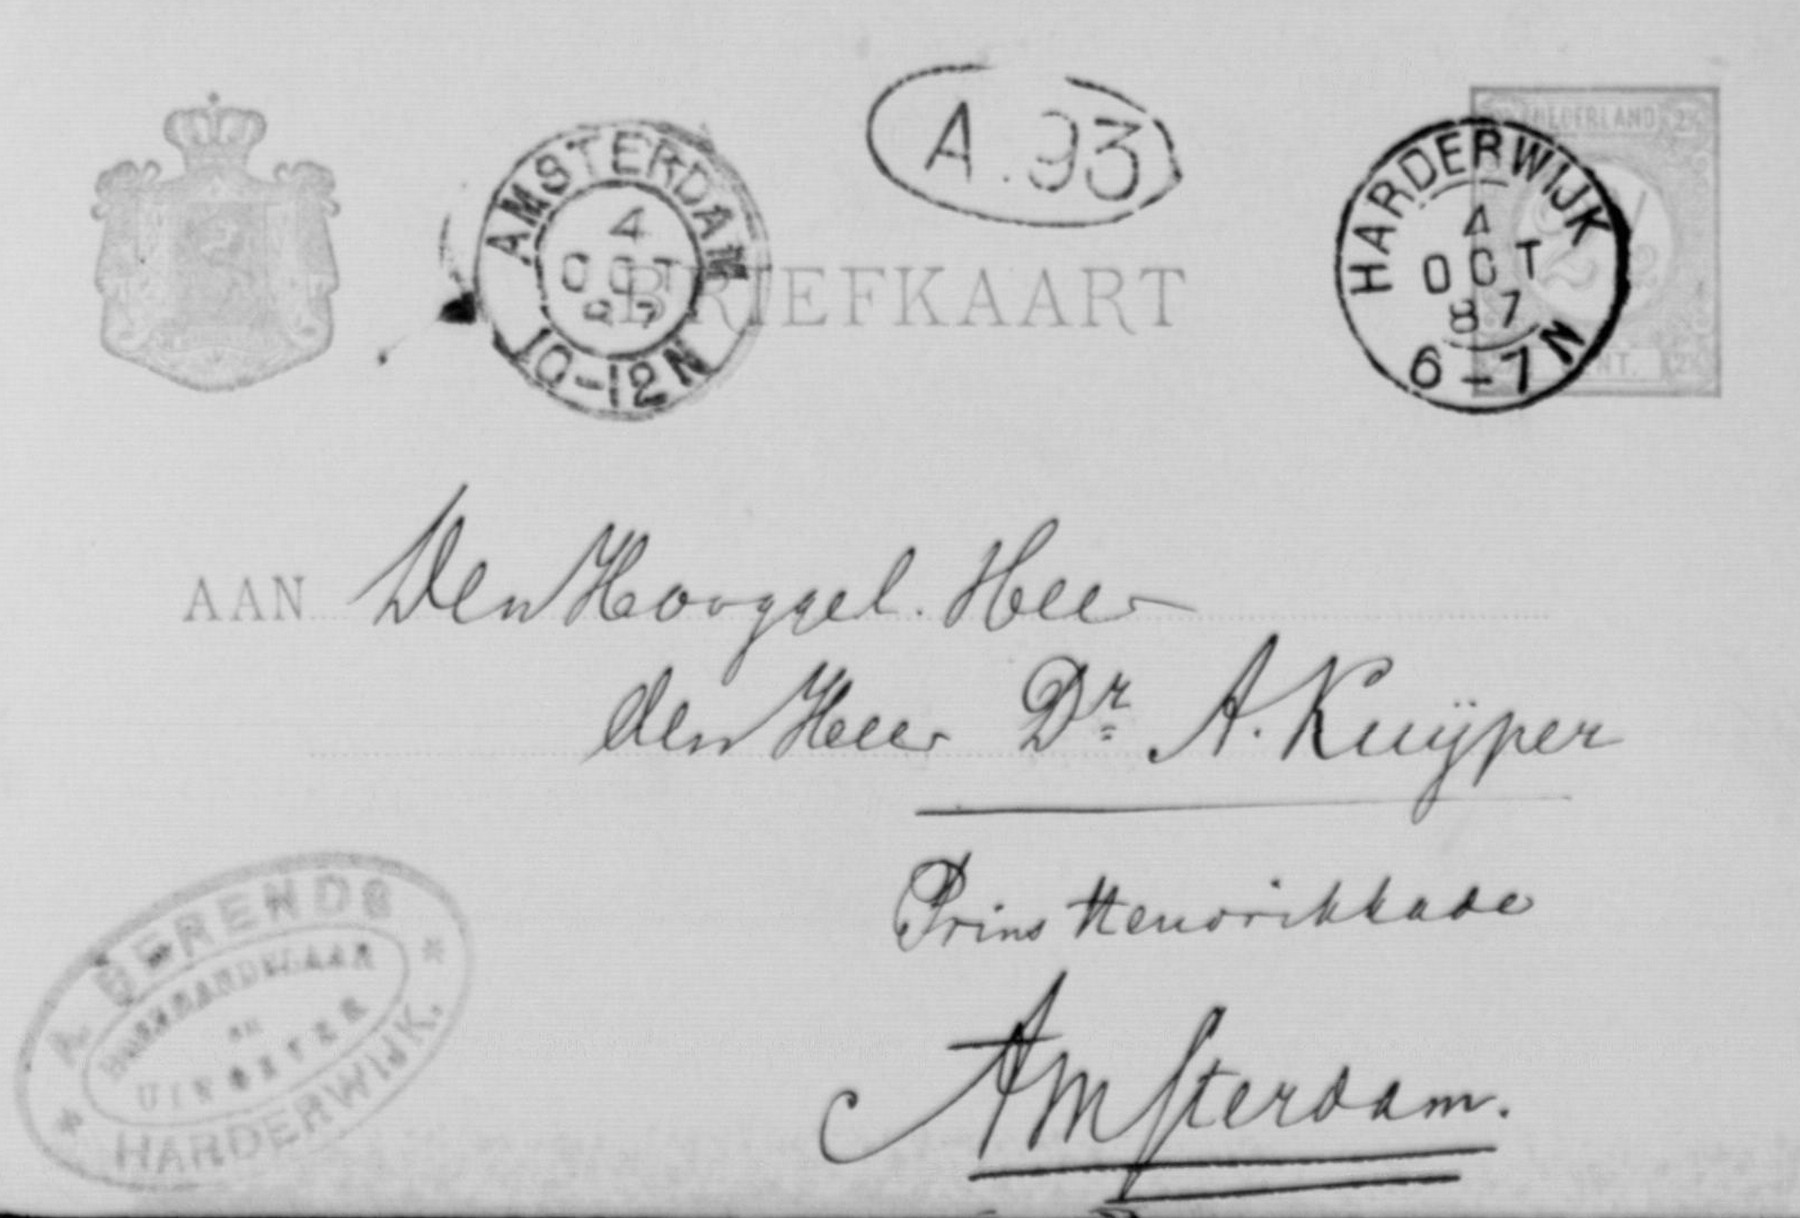 A. 93
AMSTERDAM
4
OCT
87
10-12N
HARDERWIJK
4
OCT
87
6-7N
NEDERLAND
2½
CENT.
BRIEFKAART
AAN Den Hooggel. Heer
den Heer Dr A. Kuÿper
Prins Hendrikkade
Amsterdam.
A. BERENDS
BOEKHANDELAAR
en
UITGEVER
HARDERWIJK.